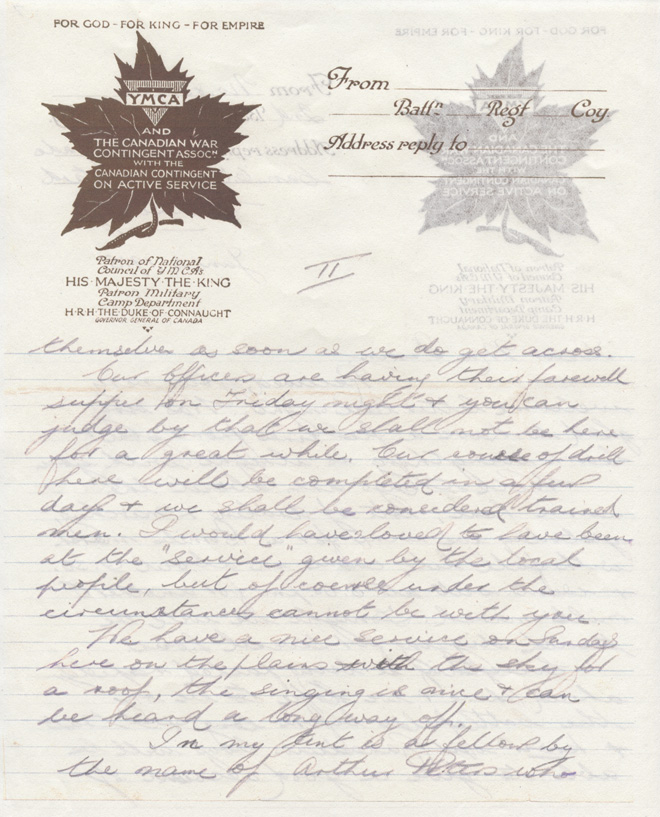 FOR GOD - FOR KING - FOR EMPIRE
YMCA
AND
THE CANADIAN WAR
CONTINGENT ASSOCN
WITH THE
CANADIAN CONTINGENT
ON ACTIVE SERVICE
Patron of National
Council of Y M C A's
HIS · MAJESTY · THE · KING
Patron Military
Camp Department
H · R · H · THE · DUKE OF CONNAUGHT
GOVERNOR GENERAL OF CANADA
From
Battn Regt Coy.
Address reply to
II
themselves as soon as we do get across.
Our Officers are having their farewell
supper on Friday night & you can
judge by that we shall not be here
for a great while. Our course of drill
here will be completed in a few
days & we shall be considered trained
men. I would have loved to have been
at the "service" given by the local
profile, but of course under the
circumstances cannot be with you
We have a nice service on Sunday
here on the plains with the sky for
a roof, the singing is nice & can
be heard a long way off.
In my tent is a fellow by
the name of Arthur who